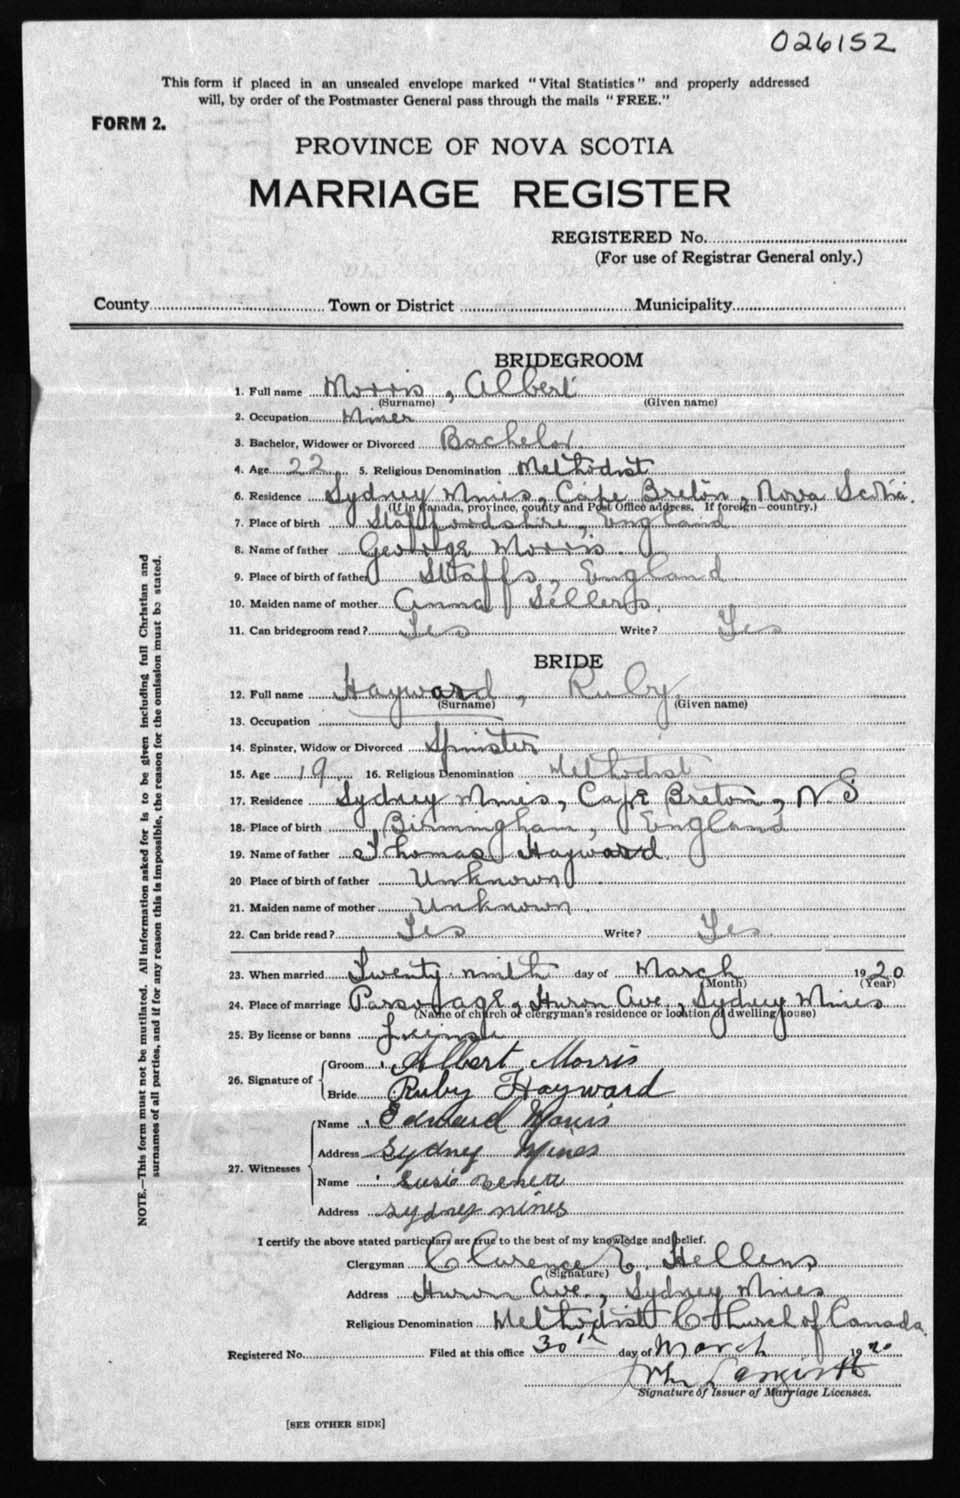 026152
This form if placed in an unsealed envelope marked "Vital Statistics" and properly addressed
will, by order of the Postmaster General pass through the mails "FREE."
FORM 2.
PROVINCE OF NOVA SCOTIA
MARRIAGE REGISTER
REGISTERED No.
(For use of Registrar General only.)
County Town or District Municipality
BRIDEGROOM
1. Full name Morris, Albert
(Surname) (Given name)
2. Occupation Miner
3. Bachelor, Widower or Divorced Bachelor
4. Age 22 5. Religious Denomination Methodist
6. Residence Sydney Mines, Cape Breton, Nova Scotia.
(If in Canada, province, county and Post Office address. If foreign—country.)
7. Place of birth Staffordshire, England
8. Name of father George Morris.
9. Place of birth of father Staffs, England
10. Maiden name of mother Anna Sellers.
11. Can bridegroom read? Yes Write? Yes
BRIDE
12. Full name Hayward, Ruby.
(Surname) (Given name)
13. Occupation
14. Spinster, Widow or Divorced Spinster
15. Age 19 16. Religious Denomination Methodist
17. Residence Sydney Mines, Cape Breton, N S
18. Place of birth Birmingham, England
19. Name of father Thomas Hayward.
20 Place of birth of father Unknown
21. Maiden name of mother Unknown
22. Can bride read? Yes Write? Yes
23. When married Twenty ninth day of March 1920
(Month) (Year)
24. Place of marriage Parsonage, Huron Ave, Sydney Mines
(Name of church or clergyman's residence or location of dwelling house)
25. By license or banns License
26. Signature of Groom Albert Morris
Bride Ruby Hayward
27. Witnesses Name Edward Morris
Address Sydney Mines
Name Susie
Address Sydney mines
I certify the above stated particulars are true to the best of my knowledge and belief.
Clergyman Clarence E. Hellens
(Signature)
Address Huron Ave., Sydney Mines
Religious Denomination Methodist Church of Canada.
Registered No. Filed at this office 30th day of March 1920
Signature of Issuer of Marriage Licenses.
[SEE OTHER SIDE]
NOTE.—This form must not be mutilated. All information asked for is to be given including full Christian and
surnames of all parties, and if for any reason this is impossible, the reason for the omission must be stated.